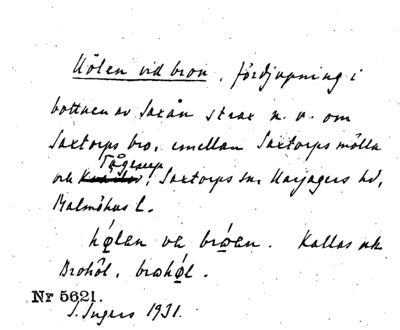 Hölen vid bron, fördjupning i
bottnen av Saxån strax n. v. om
Saxtorps bro, emellan Saxtorps mölla
Tågerup
och, Saxtorps sn. Harjagers hd,
Malmöhus l.
hǿlen ve brǿen. Kallas ock
Brohöl, brohǿl.
Nr 5621.
I. Ingers 1931.